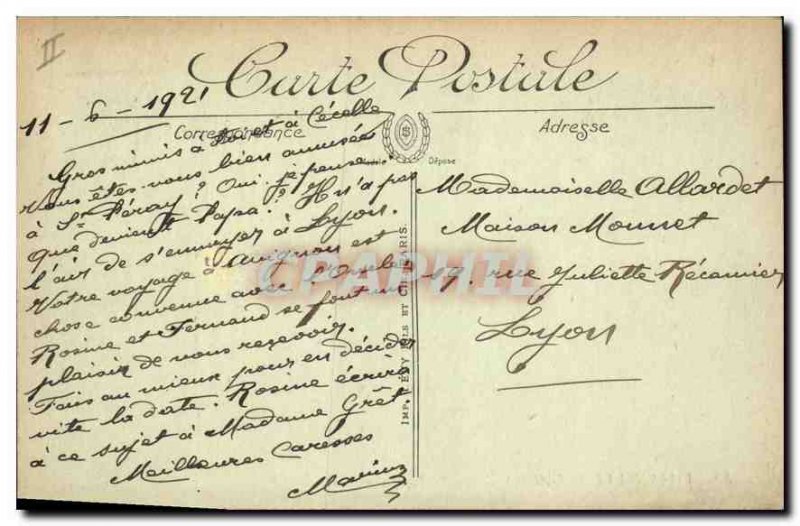 II
Carte Postale
Correspondance
Adresse
Modèle Dépose
11 - 6 - 1921
Gros mimis à toi et à Cécelle
Vous êtes-vous bien amusée
à St Péray ? Oui je pense
que devient Papa ? Il n'a pas
l'air de s'ennuyer à Lyon.
Votre voyage à Avignon est
chose convenue avec l'Oncle
Rosine et Fernand se font un
plaisir de vous recevoir.
Fais au mieux pour en décider
vite la date. Rosine écrira
à ce sujet à Madame Grêt
Meilleures Caresses
Marius
Mademoiselle Allardet
Maison Mounet
19. rue Juliette Récamier
Lyon
IMP. LÉVY FILS ET CIE PARIS
CPAPHIL